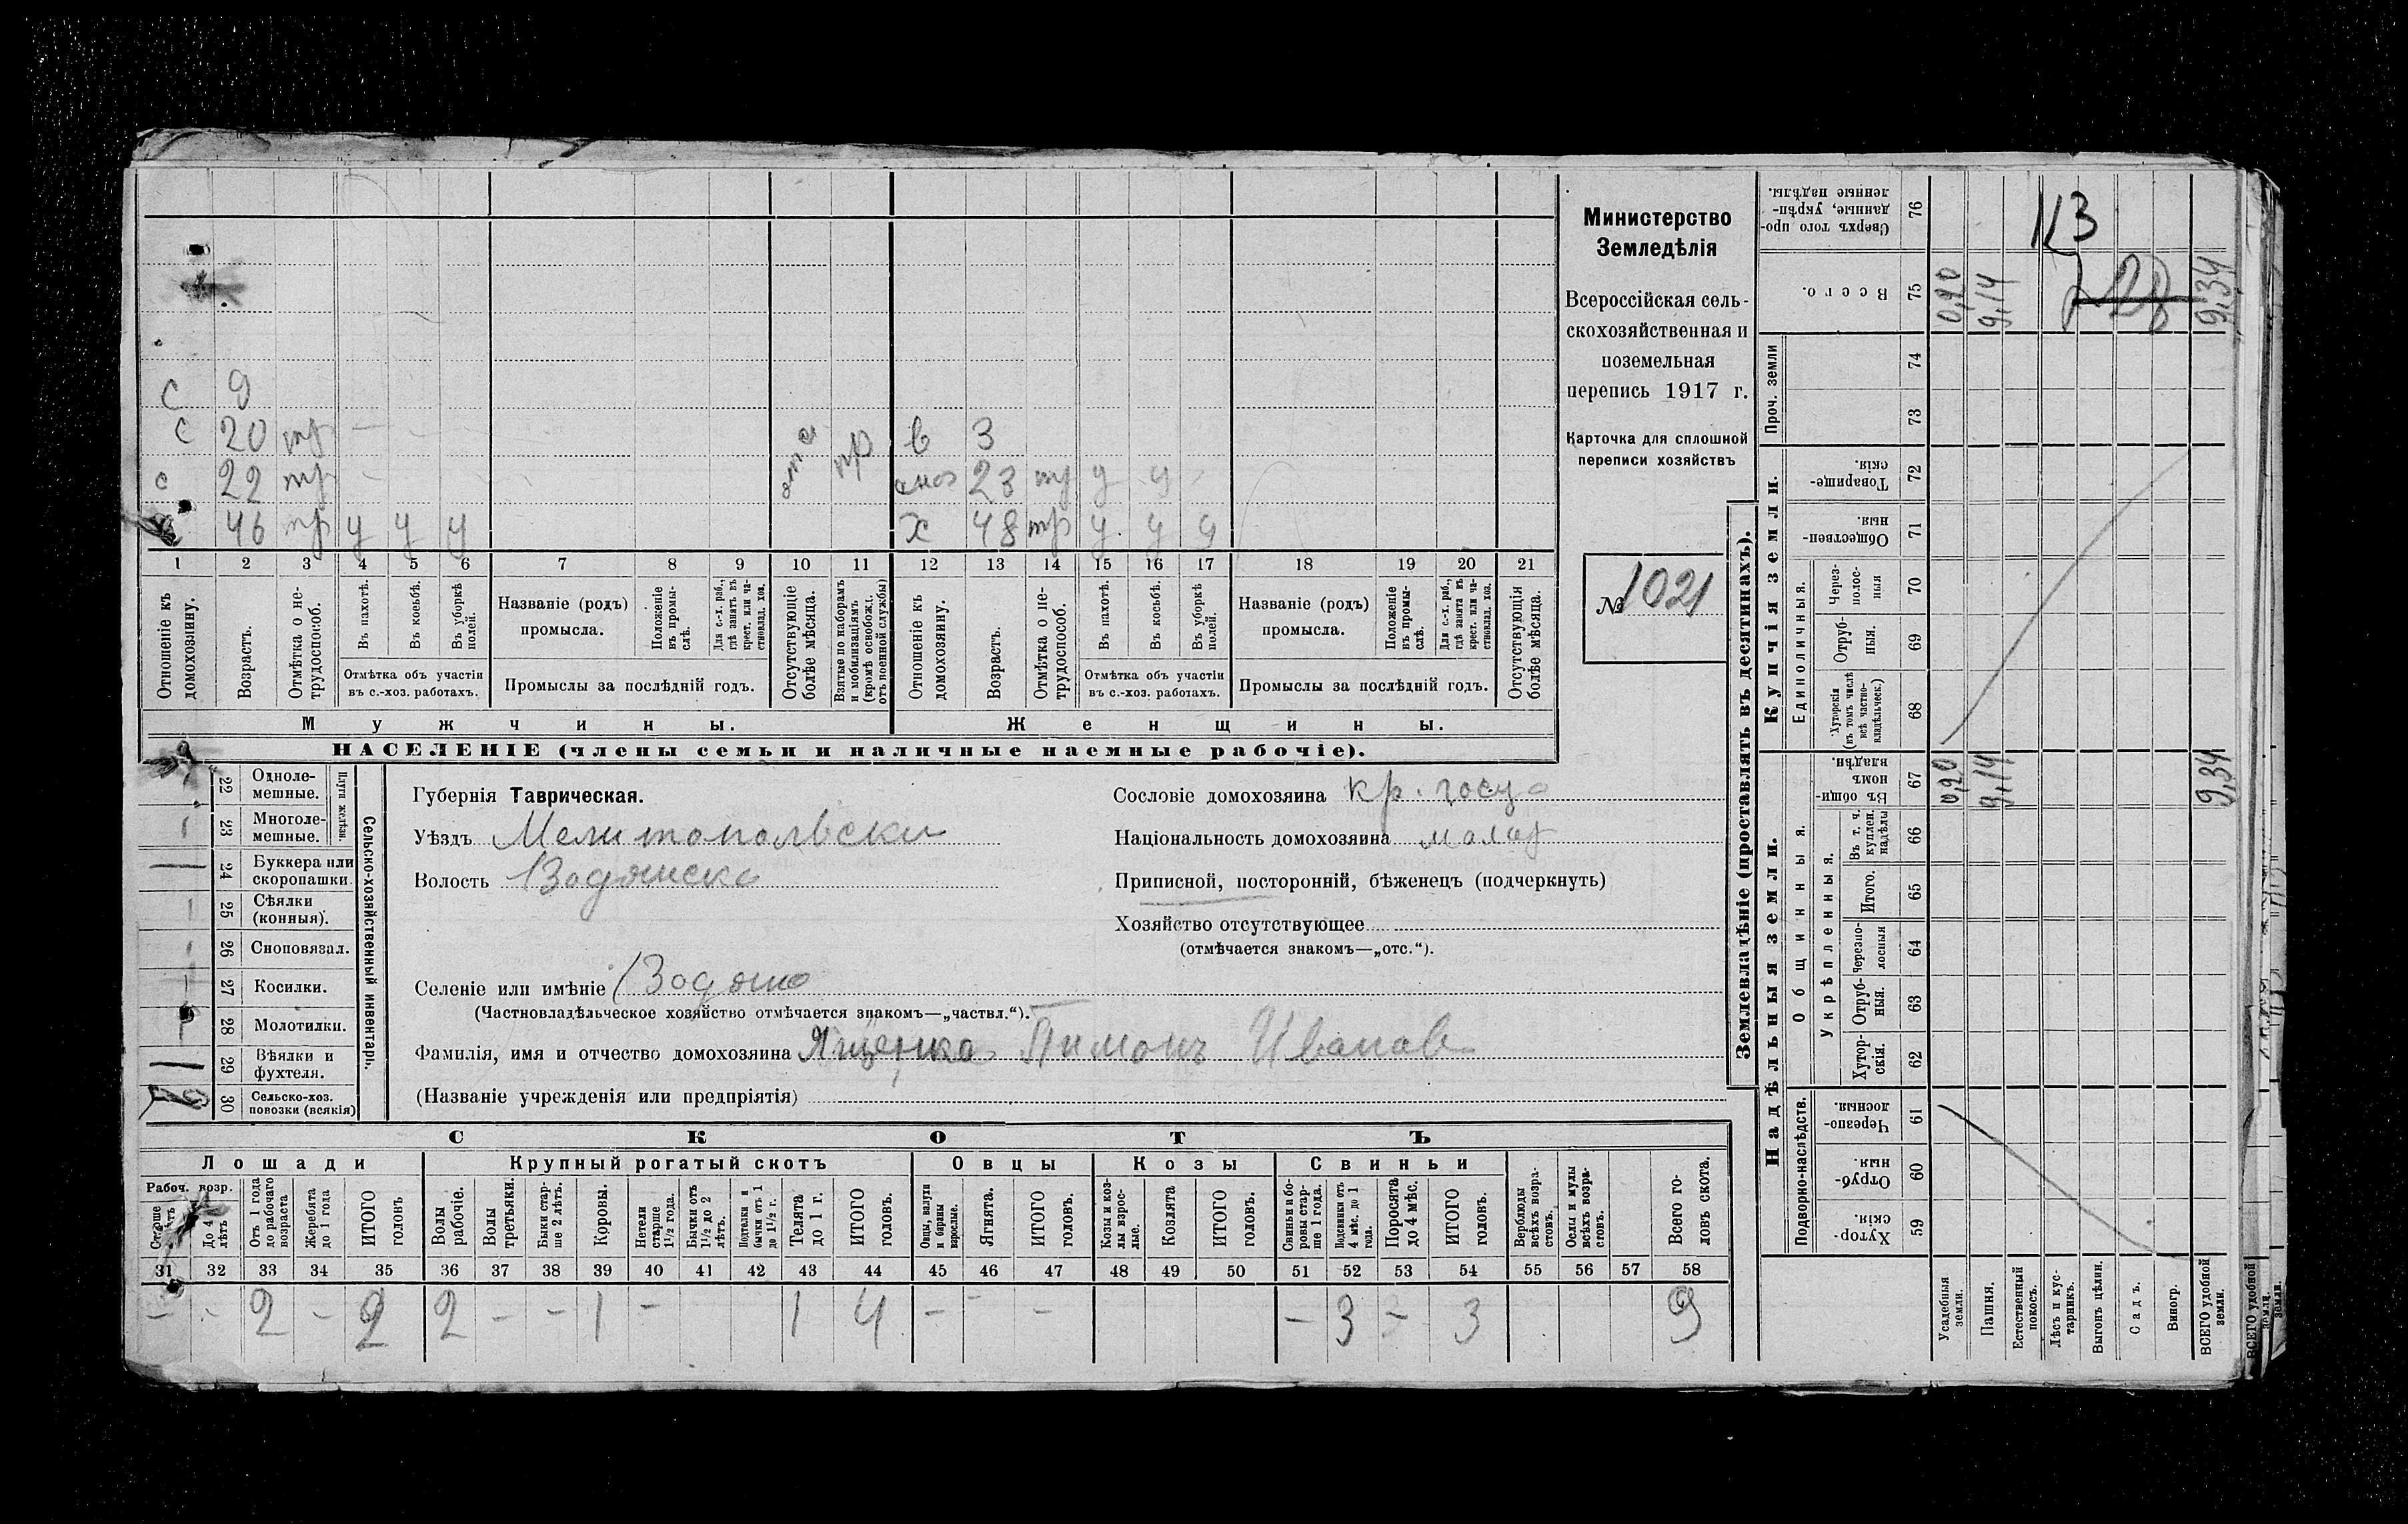 с 9
с 20 тр — в 3
с 22 тр 23 тр у у
46 тр у у у х 48 тр у у у
1 2 3 4 5 6 7 8 9 10 11 12 13 14 15 16 17 18 19 20 21
Отношеніе къ домохозяину.
Возрастъ.
Отмѣтка о нетрудоспособ.
Въ пахотѣ.
Въ косьбѣ.
Въ уборкѣ полей.
Отмѣтка объ участіи
въ с.-хоз. работахъ.
Названіе (родъ)
промысла.
Положеніе въ промыслѣ.
Для с.-х. раб., гдѣ занятъ въ крест. или частновлад. хоз.
Промыслы за послѣдній годъ.
Отсутствующіе болѣе мѣсяца.
Взятые по наборамъ и мобилизаціямъ (кромѣ освобожд. отъ военной службы)
Отношеніе къ домохозяину.
Возрастъ.
Отмѣтка о нетрудоспособ.
Въ пахотѣ.
Въ косьбѣ.
Въ уборкѣ полей.
Отмѣтка объ участіи
въ с.-хоз. работахъ.
Названіе (родъ)
промысла.
Положеніе въ промыслѣ.
Для с.-х. раб., гдѣ занята въ крест. или частновлад. хоз.
Промыслы за послѣдній годъ.
Отсутствующія болѣе мѣсяца.
Мужчины. Женщины.
НАСЕЛЕНІЕ (члены семьи и наличные наемные рабочіе).
Министерство
Земледѣлія
Всероссійская сель-
скохозяйственная и
поземельная
перепись 1917 г.
Карточка для сплошной
переписи хозяйствъ
№ 1021
Сельско-хозяйственный инвентарь.
Плуги желѣзн.
22 Однолемешные.
1 23 Многолемешные.
— 24 Буккера или скоропашки.
1 25 Сѣялки (конныя).
1 26 Сноповязал.
1 27 Косилки.
28 Молотилки.
— 29 Вѣялки и фухтеля.
30 Сельско-хоз. повозки (всякія)
Губернія Таврическая.
Уѣздъ Мелитопольски
Волость
Селеніе или имѣніе
(Частновладѣльческое хозяйство отмѣчается знакомъ—„частвл.“).
Фамилія, имя и отчество домохозяина Ященко Пимонъ Иванов
(Названіе учрежденія или предпріятія)
Сословіе домохозяина кр.
Національность домохозяина
Приписной, посторонній, бѣженецъ (подчеркнуть)
Хозяйство отсутствующее
(отмѣчается знакомъ—„отс.“).
СКОТЪ
Лошади Крупный рогатый скотъ Овцы Козы Свиньи
Рабоч. возр.
До 4 лѣтъ
Отъ 1 года до рабочаго возраста
Жеребята до 1 года
ИТОГО головъ
Волы рабочіе.
Волы третьяки.
Быки старше 2 лѣтъ.
Коровы.
Нетели старше 1½ года.
Бычки отъ 1½ до 2 лѣтъ.
Подтелки и бычки отъ 1 до 1½ г.
Телята до 1 г.
ИТОГО головъ.
Овцы, валухи и бараны взрослые.
Ягнята.
ИТОГО головъ.
Козы и козлы взрослые.
Козлята
ИТОГО головъ.
Свиньи и боровы старше 1 года.
Подсвинки отъ 4 мѣс. до 1 года.
Поросята до 4 мѣс.
ИТОГО головъ.
Верблюды всѣхъ возрастовъ.
Ослы и мулы всѣхъ возрастовъ.
Всего головъ скота.
31 32 33 34 35 36 37 38 39 40 41 42 43 44 45 46 47 48 49 50 51 52 53 54 55 56 57 58
— - 2 — 2 2 — — 1 — 1 4 — — — — 3 — 3 9
Землевладѣніе (проставлять въ десятинахъ).
Надѣльныя земли. Купчія земли.
Подворно-наслѣдств.
Общинныя.
Укрѣпленныя.
Единоличныя.
Проч. земли
76 Сверхъ того проданные, укрѣпленные надѣлы.
75 Всего. 0,20 9,14 9,34
74
73
72 Товарищескія.
71 Общественныя.
70 Черезполосныя
69 Отрубныя.
68 Хуторскія (въ томъ числѣ всѣ частновладѣльческ.)
67 Въ общинномъ владѣн. 0,20 9,14 9,34
66 Въ т. ч. куплен. надѣлы
65 Итого.
64 Черезполосныя
63 Отрубныя.
62 Хуторскія.
61 Черезполосныя.
60 Отрубныя.
59 Хуторскія.
Усадебныя земли.
Пашня.
Естественный покосъ.
Лѣсъ и кустарникъ.
Выгонъ цѣлин.
Садъ.
Виногр.
ВСЕГО удобной земли.
ВСЕГО удобной земли.
земли.